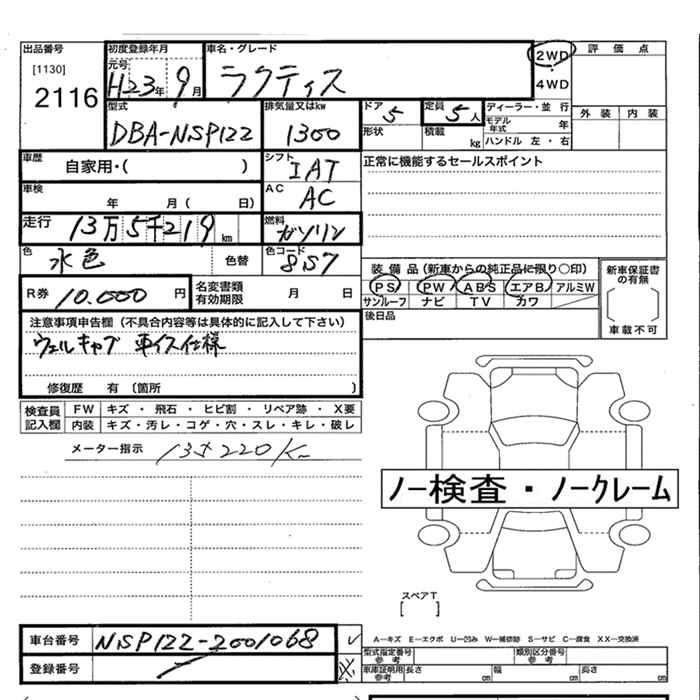 出品番号 初度登録年月 車名・グレード 2WD 評価点
[1130] 元号
2116 H23年 9月 ラクティス ・4WD
型式 排気量又はkw ドア 5 定員 5人 ディーラー・並行 外装 内装
DBA-NSP122 1300 形状 積載 kg モデル年式 年
ハンドル 左・右
車歴 自家用・( ) シフト IAT 正常に機能するセールスポイント
車検 年 月( 日) AC AC
走行 13万5千219km 燃料 ガソリン
色 水色 色替 色コード 8S7 装備品(新車からの純正品に限り○印) 新車保証書の有無
R券 10.000円 名変書類有効期限 月 日 PS PW ABS エアB アルミW
サンルーフ ナビ TV カワ 車載不可
注意事項申告欄(不具合内容等は具体的に記入して下さい) 後日品
ウェルキャブ 車イス仕様
修復歴 有(箇所 )
検査員記入欄 FW キズ・飛石・ヒビ割・リペア跡・X要
内装 キズ・汚レ・コゲ・穴・スレ・キレ・破レ
メーター指示
ノー検査・ノークレーム
スペアT
[ ]
車台番号 NSP122-2001068 A-キズ E-エクボ U-凹み W-補修跡 S-サビ C-腐食 XX-交換済
型式指定番号 参考 類別区分番号 参考
登録番号 車庫証明用 参考 長さ cm 幅 cm 高さ cm